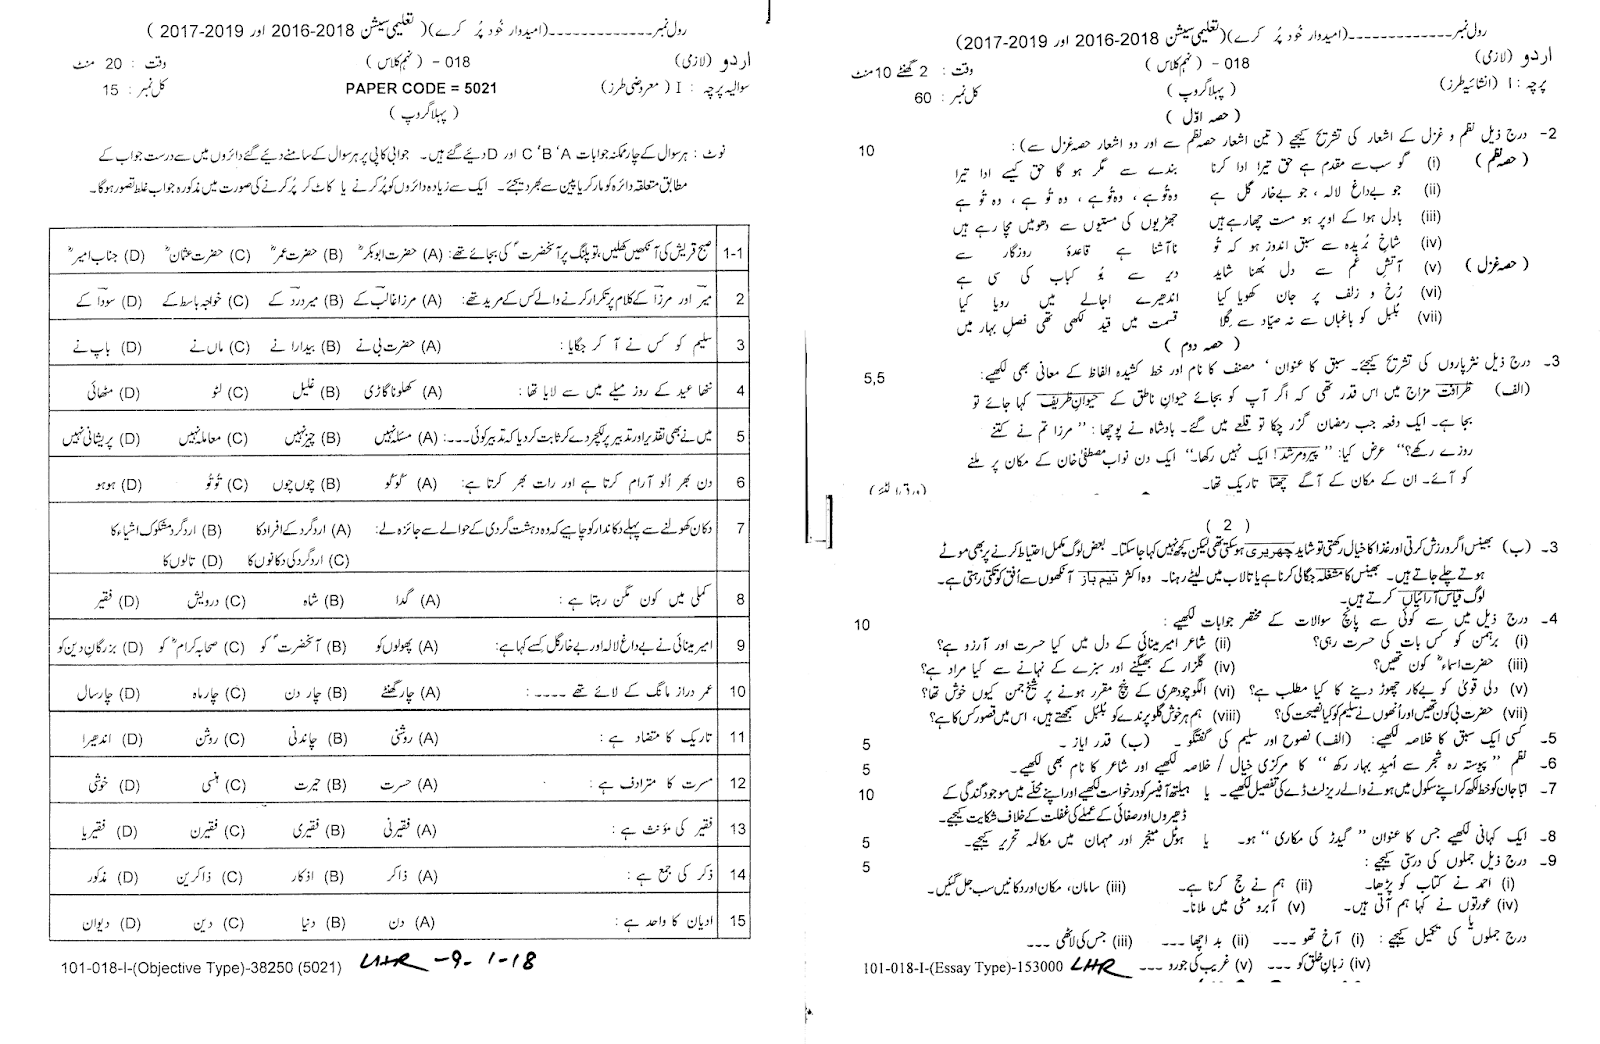 رول نمبر ------------- (امیدوار خُود پُر کرے) ( تعلیمی سیشن 2018-2016 اور 2019-2017 )
اردو (لازمی) 018 - (نہم کلاس) وقت : 20 منٹ
سوالیہ پرچہ : I (معروضی طرز) PAPER CODE = 5021 کل نمبر : 15
( پہلا گروپ )
نوٹ : ہر سوال کے چار ممکنہ جوابات A ، B ، C اور D دیئے گئے ہیں۔ جوابی کاپی پر ہر سوال کے سامنے دیئے گئے دائروں میں سے درست جواب کے
مطابق متعلقہ دائرہ کو مارکر یا پین سے بھر دیجئے۔ ایک سے زیادہ دائروں کو پُر کرنے یا کاٹ کر پُر کرنے کی صورت میں مذکورہ جواب غلط تصور ہوگا۔
1-1 صبح قریش کی آنکھیں کھلیں، تو پلنگ پر آنحضرتؐ کی بجائے تھے : (A) حضرت ابوبکرؓ (B) حضرت عمرؓ (C) حضرت عثمانؓ (D) جناب امیرؓ
2 میرؔ اور مرزاؔ کے کلام پر تکرار کرنے والے کس کے مرید تھے : (A) مرزا غالبؔ کے (B) میر دردؔ کے (C) خواجہ باسط کے (D) سوداؔ کے
3 سلیم کو کس نے آ کر جگایا : (A) حضرت بی نے (B) بیدارا نے (C) ماں نے (D) باپ نے
4 ننھا عید کے روز میلے میں سے لایا تھا : (A) کھلونا گاڑی (B) غلیل (C) لٹو (D) مٹھائی
5 میں نے بھی تقدیر اور تدبیر پر لیکچر دے کر ثابت کر دیا کہ تدبیر کوئی ۔۔۔۔ : (A) مسئلہ نہیں (B) چیز نہیں (C) معاملہ نہیں (D) پریشانی نہیں
6 دن بھر اُلو آرام کرتا ہے اور رات بھر کرتا ہے : (A) گُوگُو (B) چوں چوں (C) ٹوٹو (D) ہوہو
7 دکان کھولنے سے پہلے دکاندار کو چاہیے کہ وہ دہشت گردی کے حوالے سے جائزہ لے : (A) اردگرد کے افراد کا (B) اردگرد مشکوک اشیاء کا
(C) اردگرد کی دکانوں کا (D) تالوں کا
8 کملی میں کون مگن رہتا ہے : (A) گدا (B) شاہ (C) درویش (D) فقیر
9 امیر مینائی نے بے داغ لالہ اور بے خار گل کسے کہا ہے : (A) پھولوں کو (B) آنحضرتؐ کو (C) صحابہ کرامؓ کو (D) بزرگانِ دین کو
10 عمر دراز مانگ کے لائے تھے ۔۔۔۔ : (A) چار گھنٹے (B) چار دن (C) چار ماہ (D) چار سال
11 تاریک کا متضاد ہے : (A) روشنی (B) چاندنی (C) روشن (D) اندھیرا
12 مسرت کا مترادف ہے : (A) حسرت (B) حیرت (C) ہنسی (D) خوشی
13 فقیر کی مؤنث ہے : (A) فقیرنی (B) فقیری (C) فقیرن (D) فقیریا
14 ذکر کی جمع ہے : (A) ذاکر (B) اذکار (C) ذاکرین (D) مذکور
15 ادیان کا واحد ہے : (A) دن (B) دنیا (C) دین (D) دیوان
101-018-I-(Objective Type)-38250 (5021) LHR -9-1-18
رول نمبر ------------- (امیدوار خُود پُر کرے) (تعلیمی سیشن 2018-2016 اور 2019-2017)
اردو (لازمی) 018 - (نہم کلاس) وقت : 2 گھنٹے 10 منٹ
پرچہ : I (انشائیہ طرز) (پہلا گروپ) کل نمبر : 60
( حصہ اوّل )
2- درج ذیل نظم و غزل کے اشعار کی تشریح کیجیے (تین اشعار حصہ نظم سے اور دو اشعار حصہ غزل سے) : 10
(حصہ نظم) (i) گو سب سے مقدم ہے حق تیرا ادا کرنا بندے سے مگر ہو گا حق کیسے ادا تیرا
(ii) جو بے داغ لالہ ، جو بے خار گل ہے وہ تُو ہے ، وہ تُو ہے ، وہ تُو ہے ، وہ تُو ہے
(iii) بادل ہوا کے اوپر ہو مست چھا رہے ہیں جھڑیوں کی مستیوں سے دھومیں مچا رہے ہیں
(iv) شاخِ بُریدہ سے سبق اندوز ہو کہ تُو ناآشنا ہے قاعدۂ روزگار سے
(حصہ غزل) (v) آتشِ غم سے دل بُھنا شاید دیر سے بُو کباب کی سی ہے
(vi) رُخ و زلف پر جان کھویا کیا اندھیرے اجالے میں رویا کیا
(vii) بُلبل کو باغباں سے نہ صیّاد سے گِلا قسمت میں قید لکھی تھی فصلِ بہار میں
( حصہ دوم )
3- درج ذیل نثرپاروں کی تشریح کیجئے۔ سبق کا عنوان ، مصنف کا نام اور خط کشیدہ الفاظ کے معانی بھی لکھیے : 5,5
(الف) ظرافت مزاج میں اس قدر تھی کہ اگر آپ کو بجائے حیوانِ ناطق کے حیوانِ ظریف کہا جائے تو
بجا ہے۔ ایک دفعہ جب رمضان گزر چکا تو قلعے میں گئے۔ بادشاہ نے پوچھا : ”مرزا تم نے کتنے
روزے رکھے؟“ عرض کیا : ”پیرومرشد! ایک نہیں رکھا۔“ ایک دن نواب مصطفیٰ خان کے مکان پر ملنے
کو آئے۔ ان کے مکان کے آگے چھتّا تاریک تھا۔
(ورق الٹئے)
( 2 )
3- (ب) بھینس اگر ورزش کرتی اور غذا کا خیال رکھتی تو شاید چھریری ہو سکتی تھی لیکن کچھ نہیں کہا جا سکتا۔ بعض لوگ مکمل احتیاط کرنے پر بھی موٹے
ہوتے چلے جاتے ہیں۔ بھینس کا مشغلہ جگالی کرنا ہے یا تالاب میں لیٹے رہنا۔ وہ اکثر نیم باز آنکھوں سے اُفق کو تکتی رہتی ہے۔
لوگ قیاس آرائیاں کرتے ہیں۔
4- درج ذیل میں سے کوئی سے پانچ سوالات کے مختصر جوابات لکھیے : 10
(i) برہمن کو کس بات کی حسرت رہی؟ (ii) شاعر امیر مینائی کے دل میں کیا حسرت اور آرزو ہے؟
(iii) حضرت اسماءؓ کون تھیں؟ (iv) گلزار کے بھیگنے اور سبزے کے نہانے سے کیا مراد ہے؟
(v) دلی قویٰ کو بے کار چھوڑ دینے کا کیا مطلب ہے؟ (vi) الگو چودھری کے پنچ مقرر ہونے پر شیخ جمن کیوں خوش تھا؟
(vii) حضرت بی کون تھیں اور اُنھوں نے سلیم کو کیا نصیحت کی؟ (viii) ہم ہر خوش گلو پرندے کو بُلبُل سمجھتے ہیں، اس میں قصور کس کا ہے؟
5- کسی ایک سبق کا خلاصہ لکھیے : (الف) نصوح اور سلیم کی گفتگو ۔ (ب) قدر ایاز ۔ 5
6- نظم ”پیوستہ رہ شجر سے اُمیدِ بہار رکھ“ کا مرکزی خیال / خلاصہ لکھیے اور شاعر کا نام بھی لکھیے۔ 5
7- ابّا جان کو خط لکھ کر اپنے سکول میں ہونے والے ریزلٹ ڈے کی تفصیل لکھیے ۔ یا ہیلتھ آفیسر کو درخواست لکھیے اور اپنے محلّے میں موجود گندگی کے 10
ڈھیروں اور صفائی کے عملے کی غفلت کے خلاف شکایت کیجیے۔
8- ایک کہانی لکھیے جس کا عنوان ”گیدڑ کی مکاری“ ہو۔ یا ہوٹل منیجر اور مہمان میں مکالمہ تحریر کیجیے۔ 5
9- درج ذیل جملوں کی درستی کیجیے : 5
(i) احمد نے کتاب کو پڑھا۔ (ii) ہم نے حج کرنا ہے۔ (iii) سامان، مکان اور دکانیں سب جل گئیں۔
(iv) عورتوں نے کہا ہم آتی ہیں۔ (v) آبرو مٹی میں ملانا۔
یا
درج جملوں کی تکمیل کیجیے : (i) آخ تھو ۔۔۔ (ii) بد اچھا ۔۔۔ (iii) جس کی لاٹھی ۔۔۔
(iv) زبانِ خلق کو ۔۔۔ (v) غریب کی جورو ۔۔۔
101-018-I-(Essay Type)-153000 LHR